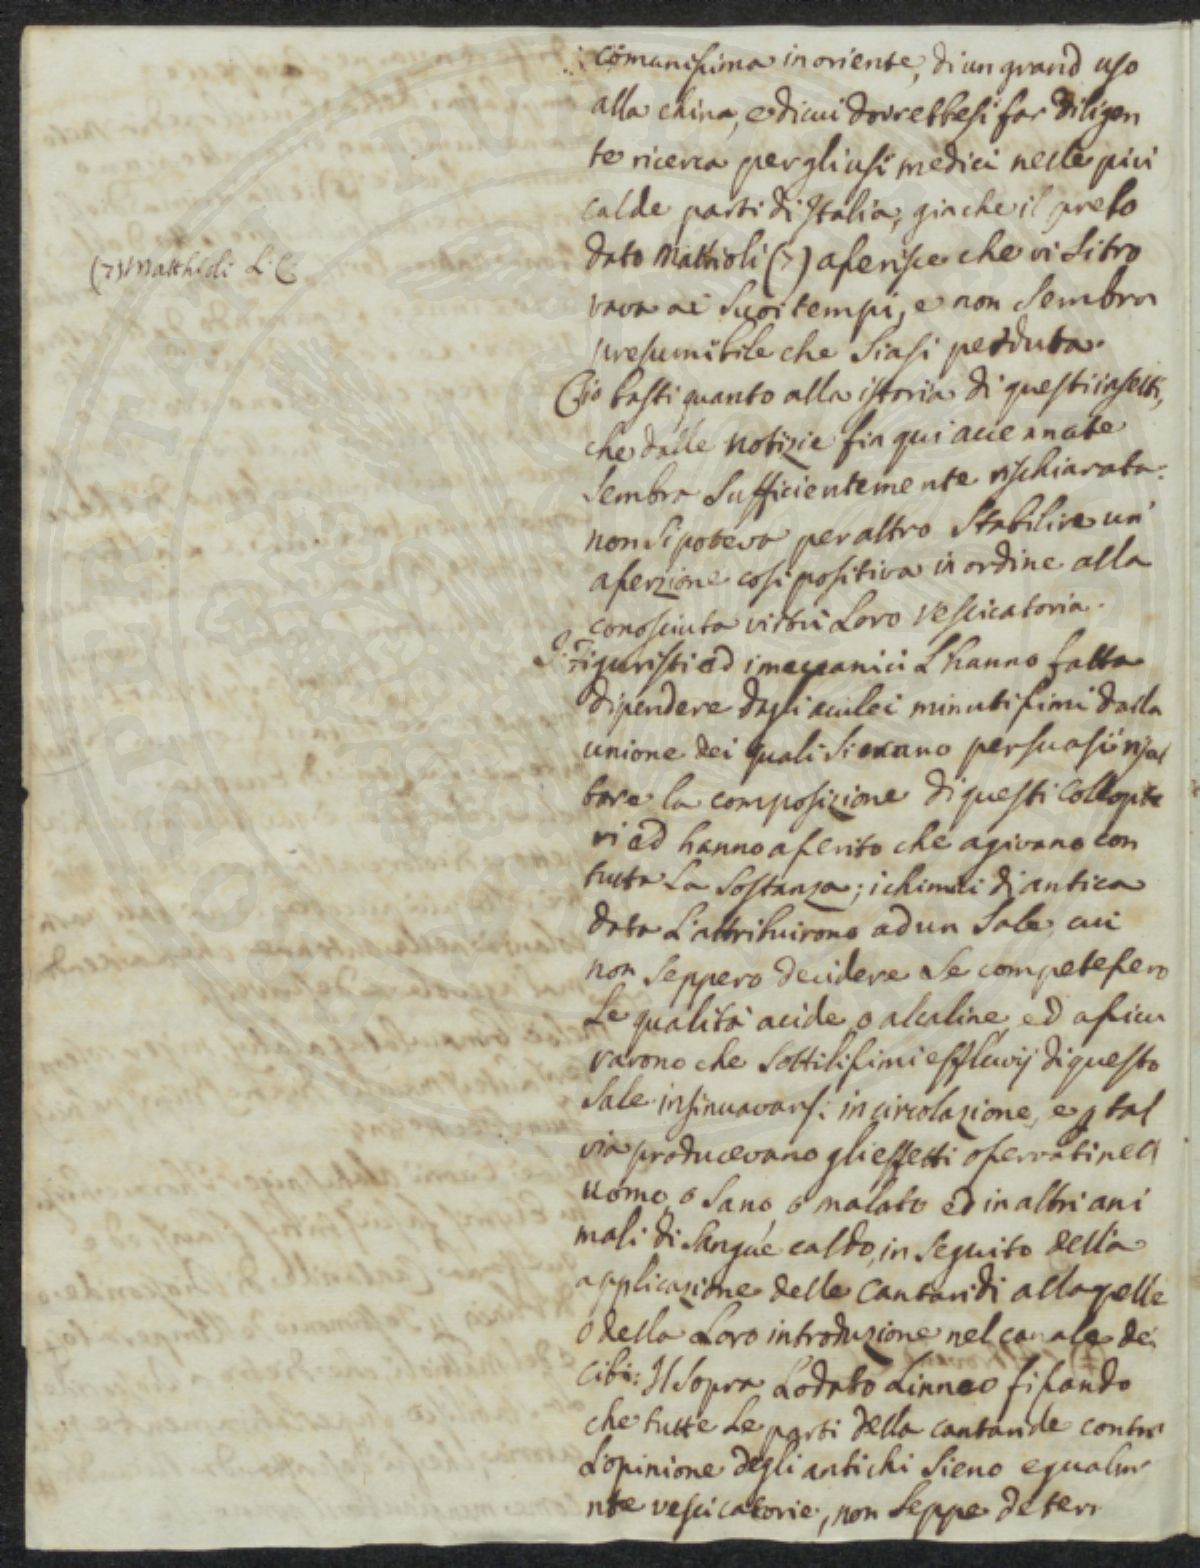 comunissima in oriente, di un grand uso
alla china, e di cui dovrebbesi far diligen
te ricerca per gli usi medici nelle più
calde parti di Italia, giache il prelo
dato Mattioli (7) asserisce che vi si tro
(7) Matthioli L. C.
vava ai suoi tempi, e non sembra
presumibile che siasi perduta.
Ciò basti quanto alla istoria di questi insetti,
che dalle notizie fin qui accennate
sembra sufficientemente rischiarata.
non si poteva per altro stabilire un'
asserzione così positiva in ordine alla
conosciuta virtù loro vescicatoria.
I Figuristi ed i meccanici l'hanno fatta
dipendere dagli aculei minutissimi dalla
unione dei quali si erano persuasi
la composizione di questi Collopte
ri ed hanno asserito che agivano con
tutta la sostanza; i chimici di antica
data l'attribuirono ad un sale cui
non seppero decidere se competessero
le qualità acide o alcaline, ed assicu
rarono che sottilissimi effluvij di questo
sale insinuavansi in circolazione, e p tal
via producevano gli effetti osservati nell
uomo o sano, o malato ed in altri ani
mali di sangue caldo, in seguito della
applicazione delle Cantaridi alla pelle
o della loro introduzione nel canale de
cibi: Il sopra lodato Linneo fissando
che tutte le parti della cantaride contro
l'opinione degli antichi sieno egualm
nte vescicatorie, non seppe deter